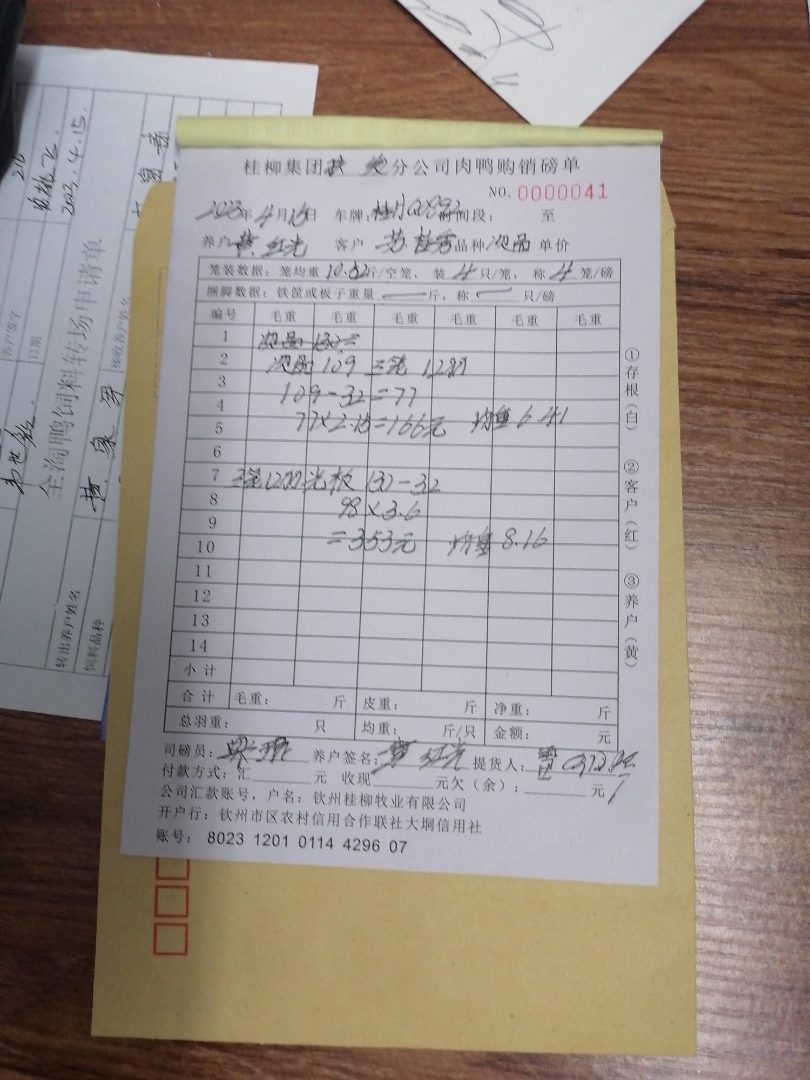 桂柳集团扶 分公司肉鸭购销磅单
NO. 0000041
2023年4月15日 车牌: 时间段: 至
养户 黄红光 客户 苏 秀 品种 次品 单价
笼装数据: 笼均重 10.62斤/空笼, 装 4 只/笼, 称 4 笼/磅
捆脚数据: 铁筐或板子重量 — 斤, 称 — 只/磅
编号 毛重 毛重 毛重 毛重 毛重 毛重
1
2 次品 109 三笼 12只
3 109-32=77
4
5 77×2.15=166元 均重 6.41
6
7 三笼12只 光板 130-32
8 98×3.6
9
10 =353元 均重 8.16
11
12
13
14
小计
合计 毛重: 斤 皮重: 斤 净重: 斤
总羽重: 只 均重: 斤/只 金额: 元
司磅员: 养户签名: 黄红光 提货人:
付款方式: 汇 元 收现 元欠(余): 元
公司汇款账号, 户名: 钦州桂柳牧业有限公司
开户行: 钦州市区农村信用合作联社大垌信用社
账号: 8023 1201 0114 4296 07
①存根(白) ②客户(红) ③养户(黄)
216
2023.4.15.
客户签字
日期
全淘鸭饲料转场申请单
转出养户姓名
饲料品种
接收养户姓名